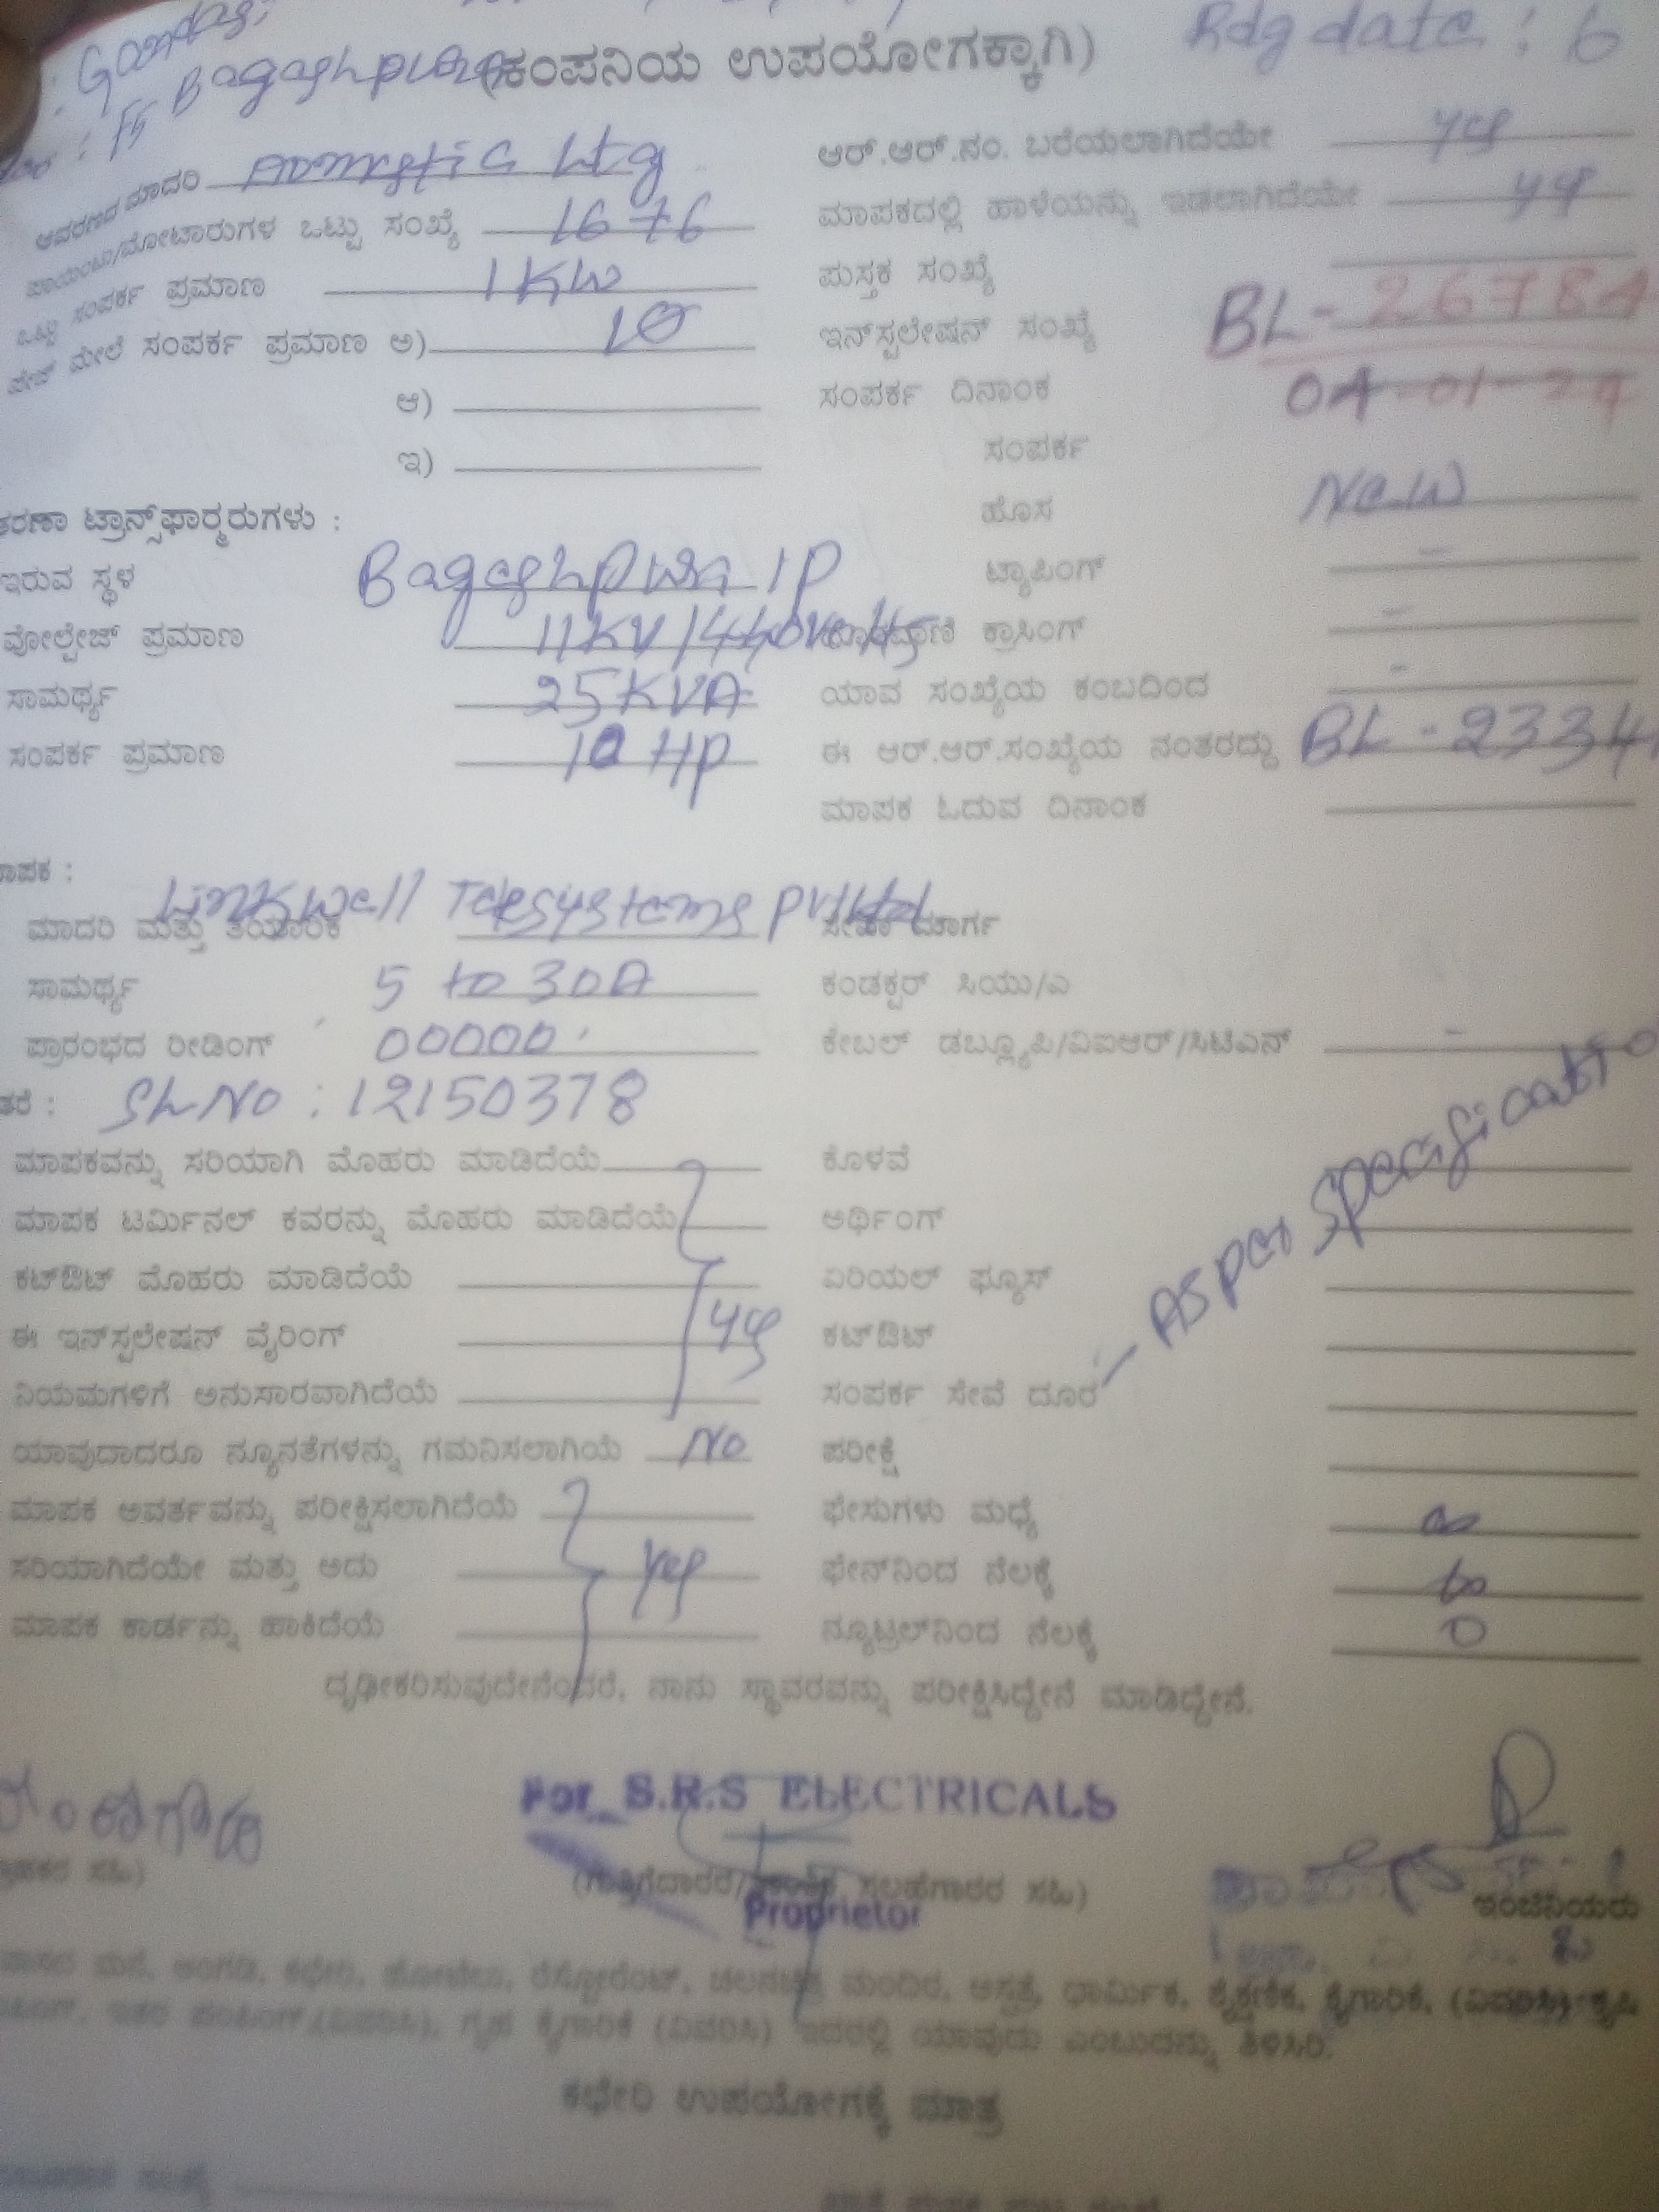 Rdg date : 6
Bagashpura (ಕಂಪನಿಯ ಉಪಯೋಗಕ್ಕಾಗಿ)
ಆವರಣದ ಮಾದರಿ Domestic Ltg ಆರ್.ಆರ್.ನಂ. ಬರೆಯಲಾಗಿದೆಯೇ yes
ಪಾಯಿಂಟು/ಮೋಟಾರುಗಳ ಒಟ್ಟು ಸಂಖ್ಯೆ ಮಾಪಕದಲ್ಲಿ ಹಾಳೆಯನ್ನು ಇಡಲಾಗಿದೆಯೇ yes
ಒಟ್ಟು ಸಂಪರ್ಕ ಪ್ರಮಾಣ 1 KW ಪುಸ್ತಕ ಸಂಖ್ಯೆ
ಮೇಲೆ ಸಂಪರ್ಕ ಪ್ರಮಾಣ ಅ) 1Ø ಇನ್‌ಸ್ಟಲೇಷನ್ ಸಂಖ್ಯೆ BL - 26784
ಆ) ಸಂಪರ್ಕ ದಿನಾಂಕ 04-01-
ಇ) ಸಂಪರ್ಕ
ಟ್ರಾನ್ಸ್‌ಫಾರ್ಮರುಗಳು : ಹೊಸ New
ಇರುವ ಸ್ಥಳ Bagashpura IP ಟ್ಯಾಪಿಂಗ್ -
ವೋಲ್ಟೇಜ್ ಪ್ರಮಾಣ 11KV/440Volts ಕ್ರಾಸಿಂಗ್ -
ಸಾಮರ್ಥ್ಯ 25 KVA ಯಾವ ಸಂಖ್ಯೆಯ ಕಂಬದಿಂದ -
ಸಂಪರ್ಕ ಪ್ರಮಾಣ 10 HP ಈ ಆರ್.ಆರ್.ಸಂಖ್ಯೆಯ ನಂತರದ್ದು BL - 2334
ಮಾಪಕ ಓದುವ ದಿನಾಂಕ
Linkwell Telesystems Pvt Ltd
ಮಾದರಿ ಮತ್ತು ತಯಾರಿಕೆ ಮಾರ್ಗ
ಸಾಮರ್ಥ್ಯ 5 to 30A ಕಂಡಕ್ಟರ್ ಸಿಯು/ಎ
ಪ್ರಾರಂಭದ ರೀಡಿಂಗ್ 00000 ಕೇಬಲ್ ಡಬ್ಲ್ಯೂಪಿ/ವಿಐಆರ್/ಸಿಟಿಎನ್ -
SL No : 12150378
ಮಾಪಕವನ್ನು ಸರಿಯಾಗಿ ಮೊಹರು ಮಾಡಿದೆಯೆ ಕೊಳವೆ
ಮಾಪಕ ಟರ್ಮಿನಲ್ ಕವರನ್ನು ಮೊಹರು ಮಾಡಿದೆಯೆ ಅರ್ಥಿಂಗ್
ಕಟ್‌ಔಟ್ ಮೊಹರು ಮಾಡಿದೆಯೆ ಏರಿಯಲ್ ಫ್ಯೂಸ್
ಈ ಇನ್‌ಸ್ಟಲೇಷನ್ ವೈರಿಂಗ್ yes ಕಟ್‌ಔಟ್
ನಿಯಮಗಳಿಗೆ ಅನುಸಾರವಾಗಿದೆಯೆ ಸಂಪರ್ಕ ಸೇವೆ ದೂರ - As per
ಯಾವುದಾದರೂ ನ್ಯೂನತೆಗಳನ್ನು ಗಮನಿಸಲಾಗಿಯೆ No ಪರೀಕ್ಷೆ
ಮಾಪಕ ಅವರ್ತವನ್ನು ಪರೀಕ್ಷಿಸಲಾಗಿದೆಯೆ ಫೇಸುಗಳು ಮಧ್ಯೆ ∞
ಸರಿಯಾಗಿದೆಯೇ ಮತ್ತು ಅದು yes ಫೇಸ್‌ನಿಂದ ನೆಲಕ್ಕೆ ∞
ಮಾಪಕ ಕಾರ್ಡನ್ನು ಹಾಕಿದೆಯೆ ನ್ಯೂಟ್ರಲ್‌ನಿಂದ ನೆಲಕ್ಕೆ 0
ದೃಢೀಕರಿಸುವುದೇನೆಂದರೆ, ನಾನು ಸ್ಥಾವರವನ್ನು ಪರೀಕ್ಷಿಸಿದ್ದೇನೆ ಮಾಡಿದ್ದೇನೆ.
For S.R.S ELECTRICALS
ಸಲಹೆಗಾರರ ಸಹಿ)
Proprietor ಇಂಜಿನಿಯರು
ಮನೆ, ಅಂಗಡಿ, ಕಛೇರಿ, ಹೋಟೇಲು, ರೆಸ್ಟೋರೆಂಟ್, ಮಂದಿರ, ಆಸ್ಪತ್ರೆ, ಧಾರ್ಮಿಕ, ಶೈಕ್ಷಣಿಕ, ಕೈಗಾರಿಕೆ, (ವಿವರಿಸಿ) ಕೃಷಿ
ಇತರ (ವಿವರಿಸಿ), ಗೃಹ ಕೈಗಾರಿಕೆ (ವಿವರಿಸಿ) ಇದರಲ್ಲಿ ಯಾವುದು ಎಂಬುದನ್ನು ತಿಳಿಸಿರಿ.
ಕಛೇರಿ ಉಪಯೋಗಕ್ಕೆ ಮಾತ್ರ